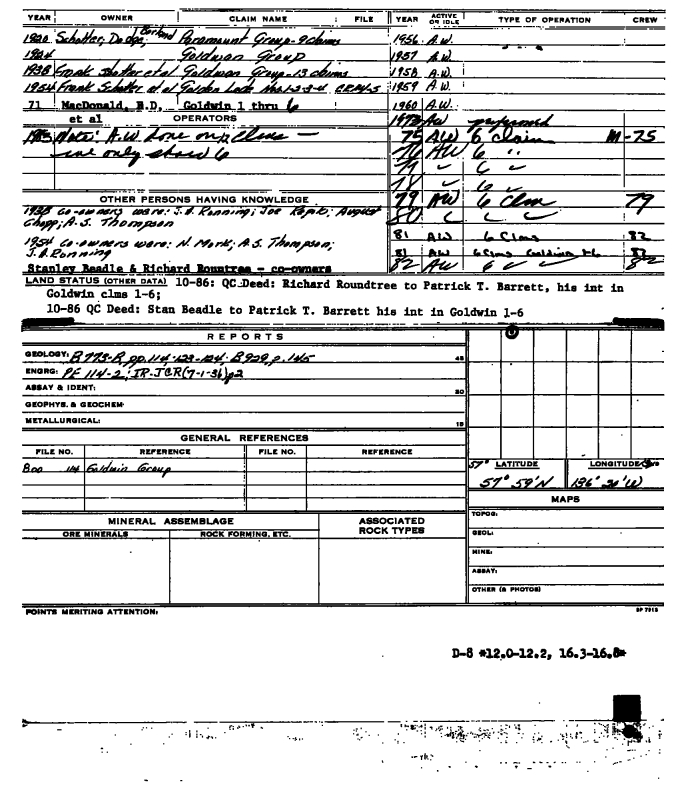 YEAR OWNER CLAIM NAME FILE YEAR ACTIVE OR IDLE TYPE OF OPERATION CREW
1920 Schotter, Dodge, Paramount Group-9 claims 1956 A.W.
1924 Goldman Group 1957 A.W.
1938 Frank Schotter et al Goldman Group-13 claims 1958 A.W.
1954 Frank Schotter et al Golden Lode Nos 1-2-3-4 1959 A.W.
71 MacDonald, B.D. Goldwin 1 thru 6 1960 A.W.
et al 1973 AW performed
OPERATORS
1983 Note: A.W. done on clms — 75 AW 6 claim M-75
we only show 6 76 AW 6 "
77 ✓ 6 ✓
78 ✓ 6 ✓
OTHER PERSONS HAVING KNOWLEDGE 79 AW 6 Clm 79
1938 co-owners were: J.B. Ronning; Joe ; August 80
; A.S. Thompson
1954 co-owners were: N. Mork; A.S. Thompson; 81 AW 6 Clms 82
J.B. Ronning 81 AW 6 Clms Goldwin 1-6
Stanley Beadle & Richard Rountree - co-owners 82 AW 6
LAND STATUS (OTHER DATA) 10-86: QC Deed: Richard Roundtree to Patrick T. Barrett, his int in
Goldwin clms 1-6;
10-86 QC Deed: Stan Beadle to Patrick T. Barrett his int in Goldwin 1-6
REPORTS
GEOLOGY: B 773-B, pp. 114, 123-124; B 929, p. 145
ENGRG: PE 114-2; IR-JCR (7-1-36) p2
ASSAY & IDENT:
GEOPHYS. & GEOCHEM.
METALLURGICAL:
GENERAL REFERENCES
FILE NO. REFERENCE FILE NO. REFERENCE
114 Goldwin Group
57° LATITUDE LONGITUDE
57° 59'N 136° 20'W
MAPS
TOPOG:
GEOL:
MINE:
ASSAY:
OTHER (& PHOTOS)
MINERAL ASSEMBLAGE ASSOCIATED ROCK TYPES
ORE MINERALS ROCK FORMING, ETC.
POINTS MERITING ATTENTION:
SP 7915
D-8 *12.0-12.2, 16.3-16.8*